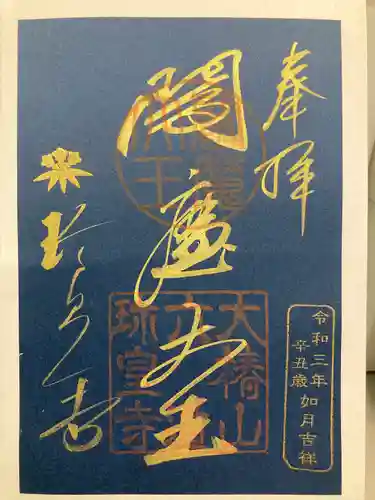 奉拝
閻魔大王
閻魔大王
大椿山
六
珠宝寺
令和三年
辛丑歳
如月吉祥
珠宝寺